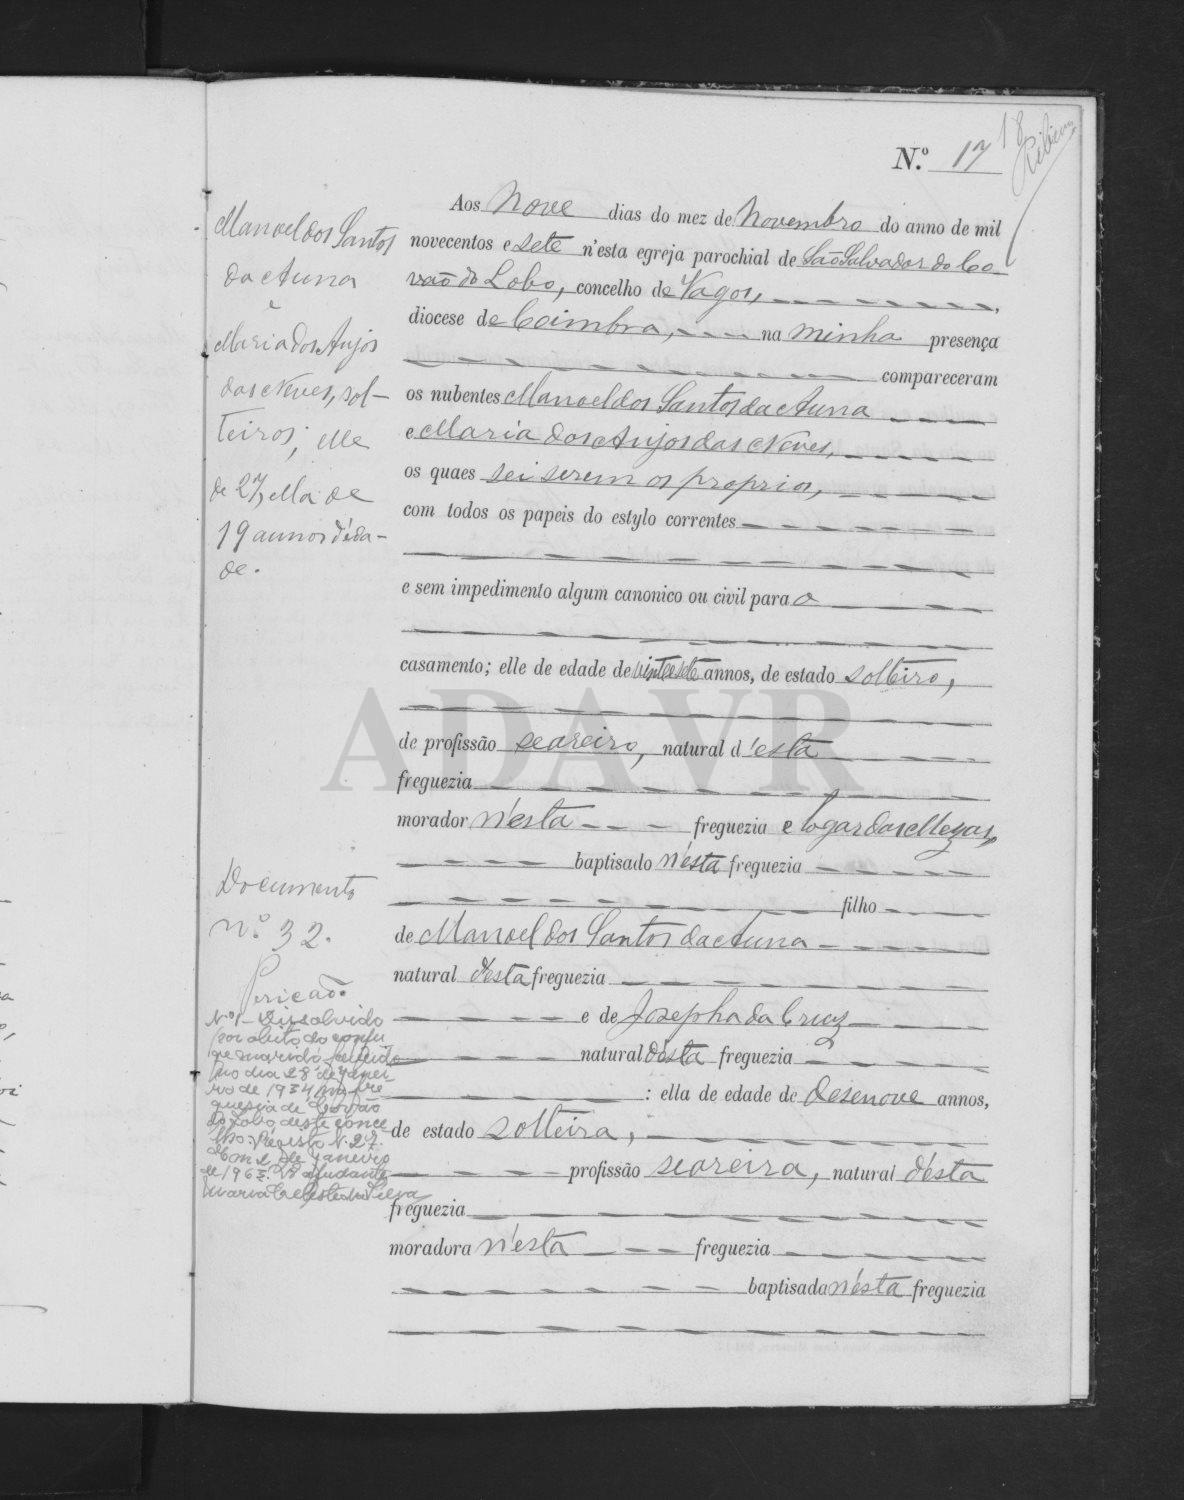 18
Ribeiro
N.º 17
Manoel dos Santos
da Anna
e
Maria dos Anjos
das Neves, sol-
teiros; elle
de 27, ella de
19 annos d'eda-
de.
Aos Nove dias do mez de Novembro do anno de mil
novecentos e sete n'esta egreja parochial de São Salvador do Co-
vão do Lobo, concelho de Vagos,
diocese de Coimbra, na minha presença
compareceram
os nubentes Manoel dos Santos da Anna
e Maria dos Anjos das Neves,
os quaes sei serem os proprios,
com todos os papeis do estylo correntes
e sem impedimento algum canonico ou civil para o
casamento; elle de edade de vinte e sete annos, de estado solteiro,
ADAVR
de profissão seareiro, natural d'esta
freguezia
morador n'esta freguezia e logar das Mezas,
baptisado n'esta freguezia
filho
de Manoel dos Santos da Anna
natural d'esta freguezia
e de Josepha da Cruz
natural d'esta freguezia
: ella de edade de desenove annos,
de estado solteira,
profissão seareira, natural d'esta
freguezia
moradora n'esta freguezia
baptisada n'esta freguezia
Documento
n.º 32.
Pericão
Nº 1 - Dissolvido
por obito do conju
ge marido falecido
no dia 28 de Janei-
ro de 1934 na fre
guesia de Covão
do Lobo, deste conce
lho. Registo N. 27.
Em 2 de Janeiro
de 196 O ajudante
Maria Celeste da Silva